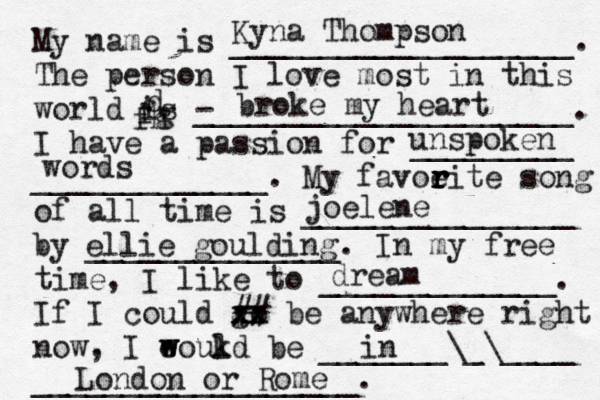 My name is Kyna Thompson.
The person I love most in this
world is - broke my heart.
I have a passion for unspoken
words. My favorite song
of all time is joelene
by ellie goulding. In my free
time, I like to dream.
If I could be anywhere right
now, I would be in
London or Rome.